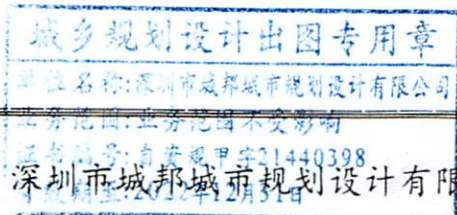 城乡规划设计出图专用章
单位名称:深圳市城邦城市规划设计有限公司
业务范围:业务范围不受影响
证书编号:自资规甲字21440398
深圳市城邦城市规划设计有限